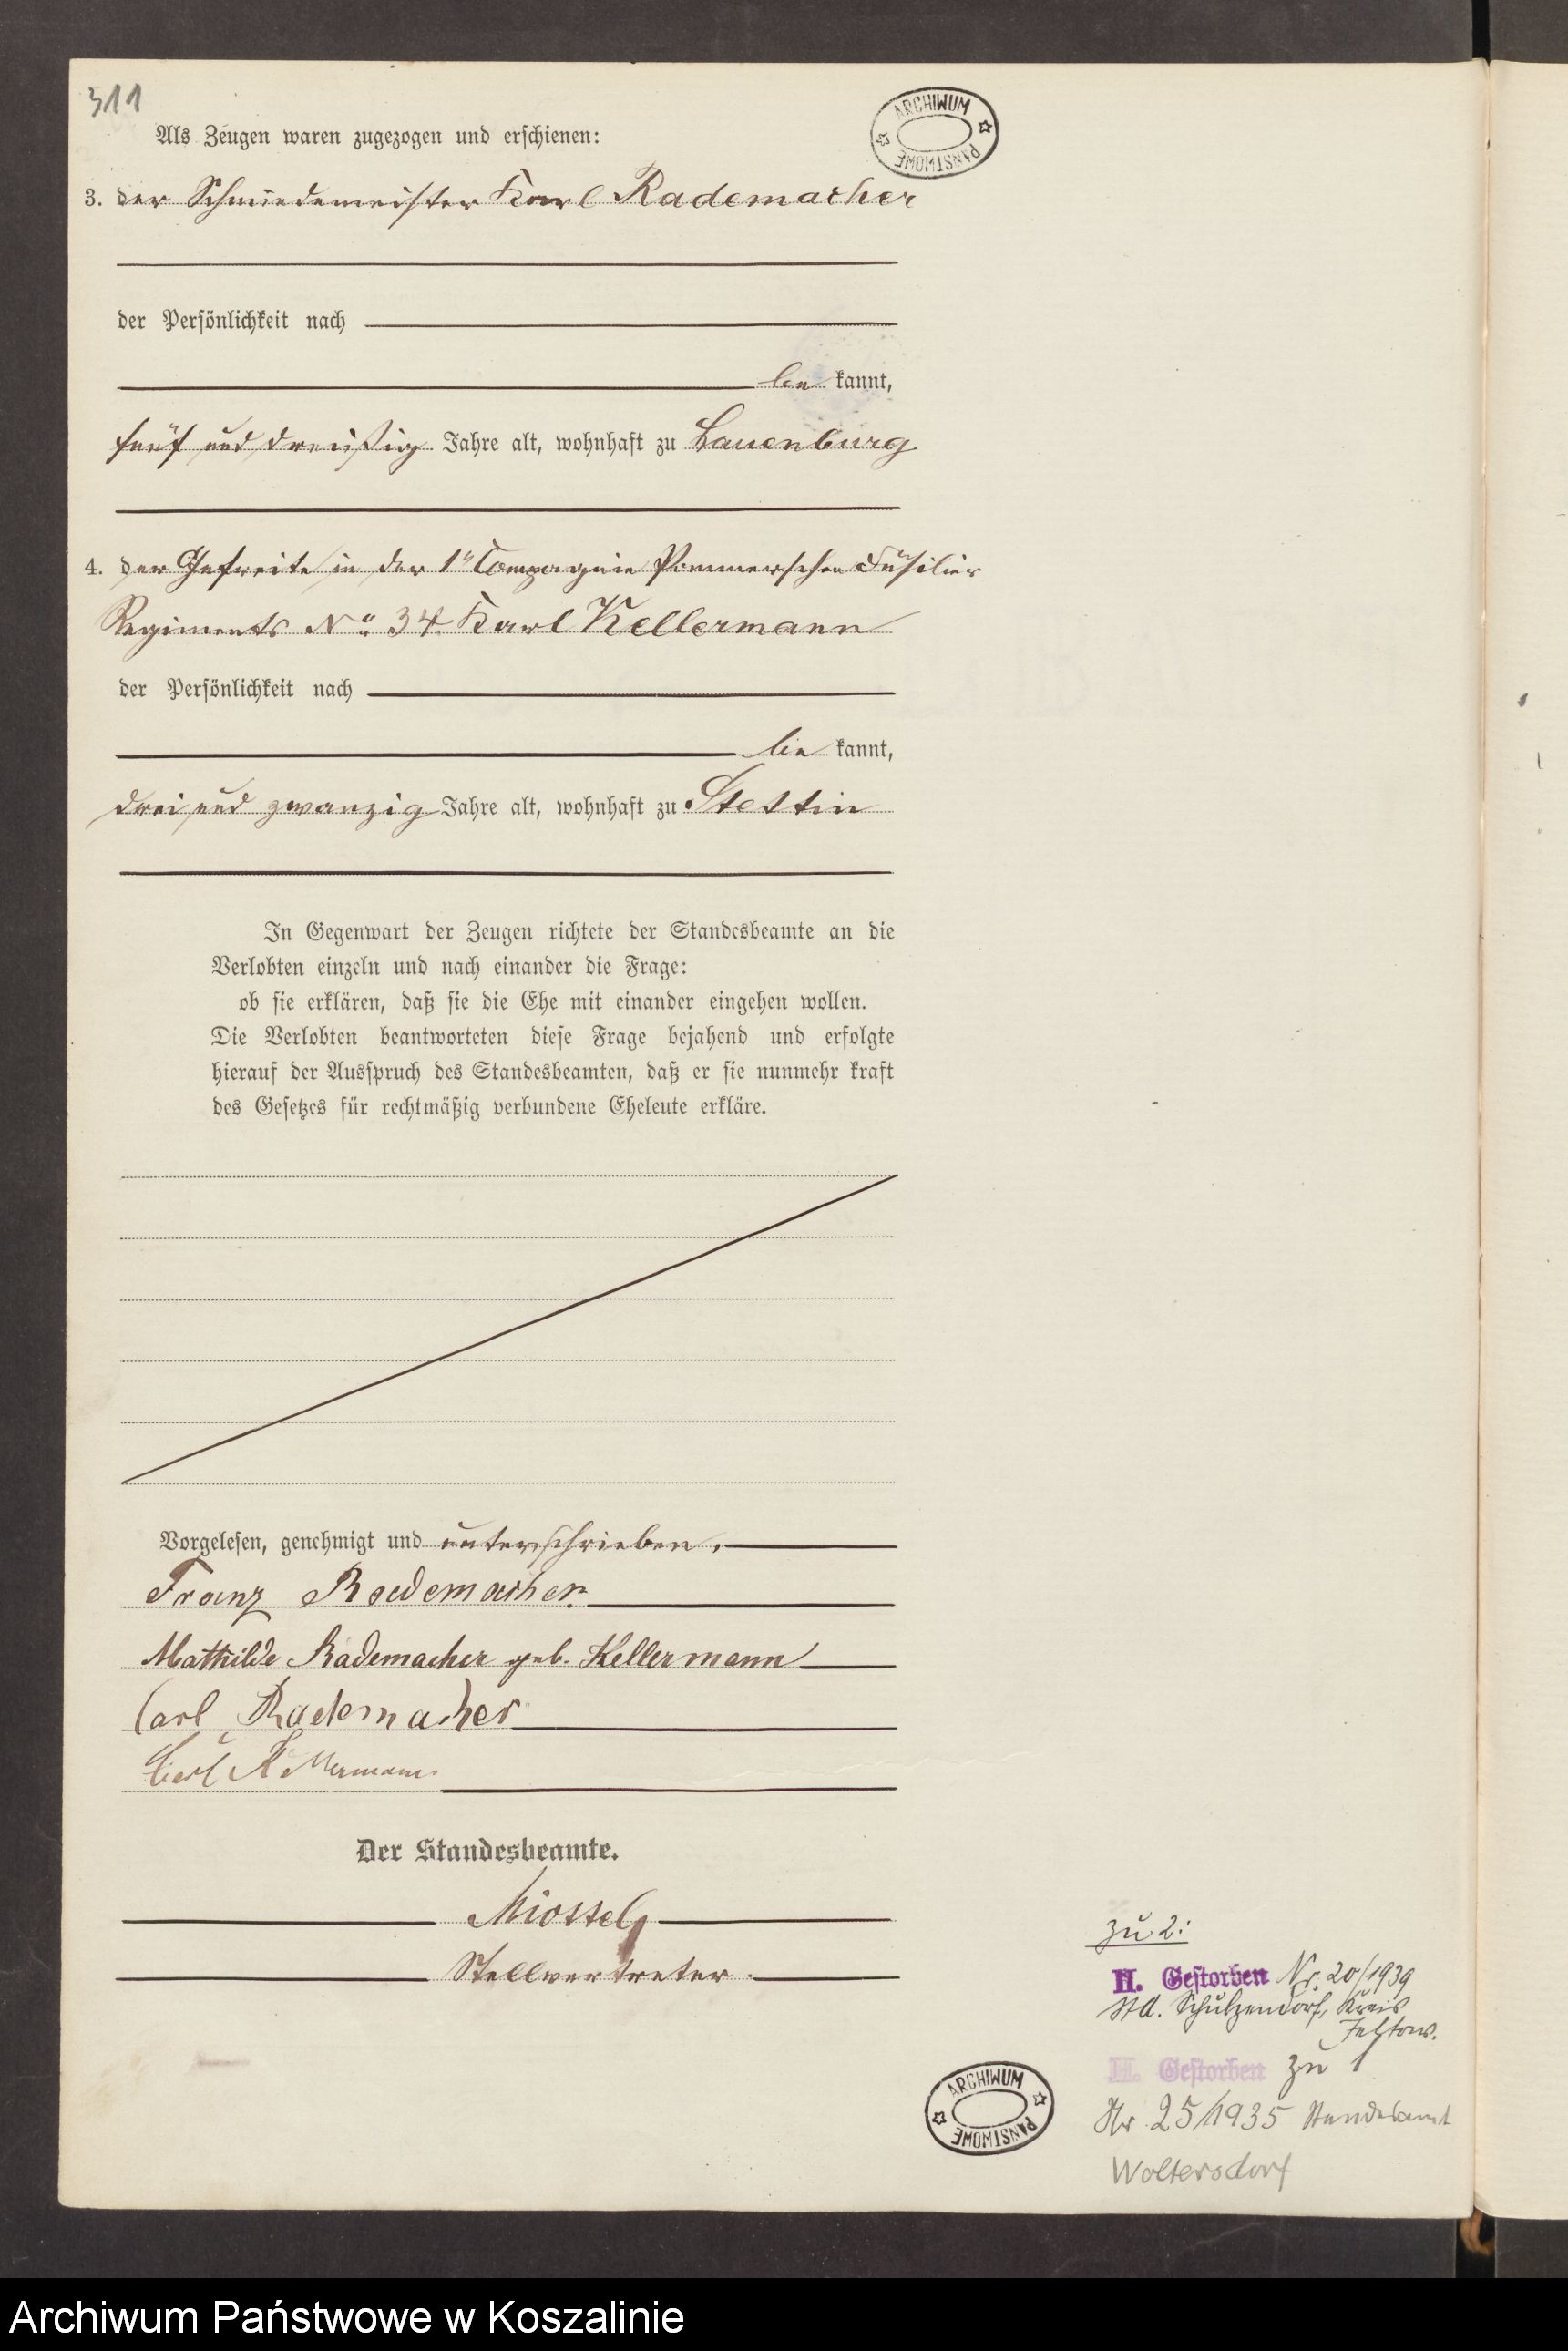 311
ARCHIWUM PAŃSTWOWE
Als Zeugen waren zugezogen und erschienen:
3. der Schmiedemeister Karl Rademacher
der Persönlichkeit nach
be kannt,
fünf und dreißig Jahre alt, wohnhaft zu Lauenburg
4. der Gefreite in der 1ten Compagnie Pommerschen Füsilier
Regiments No 34 Karl Kellermann
der Persönlichkeit nach
be kannt,
drei und zwanzig Jahre alt, wohnhaft zu Stettin
In Gegenwart der Zeugen richtete der Standesbeamte an die
Verlobten einzeln und nach einander die Frage:
ob sie erklären, daß sie die Ehe mit einander eingehen wollen.
Die Verlobten beantworteten diese Frage bejahend und erfolgte
hierauf der Ausspruch des Standesbeamten, daß er sie nunmehr kraft
des Gesetzes für rechtmäßig verbundene Eheleute erkläre.
Vorgelesen, genehmigt und unterschrieben.
Franz Rademacher
Mathilde Rademacher geb. Kellermann
Carl Rademacher
Carl Kellermann
Der Standesbeamte.
Stellvertreter.
zu 2:
H. Gestorben Nr. 20/1939
Std. Schulzendorf, Kreis
Teltow.
H. Gestorben zu 1
Nr 25/1935 Standesamt
Woltersdorf
ARCHIWUM PAŃSTWOWE
Archiwum Państwowe w Koszalinie